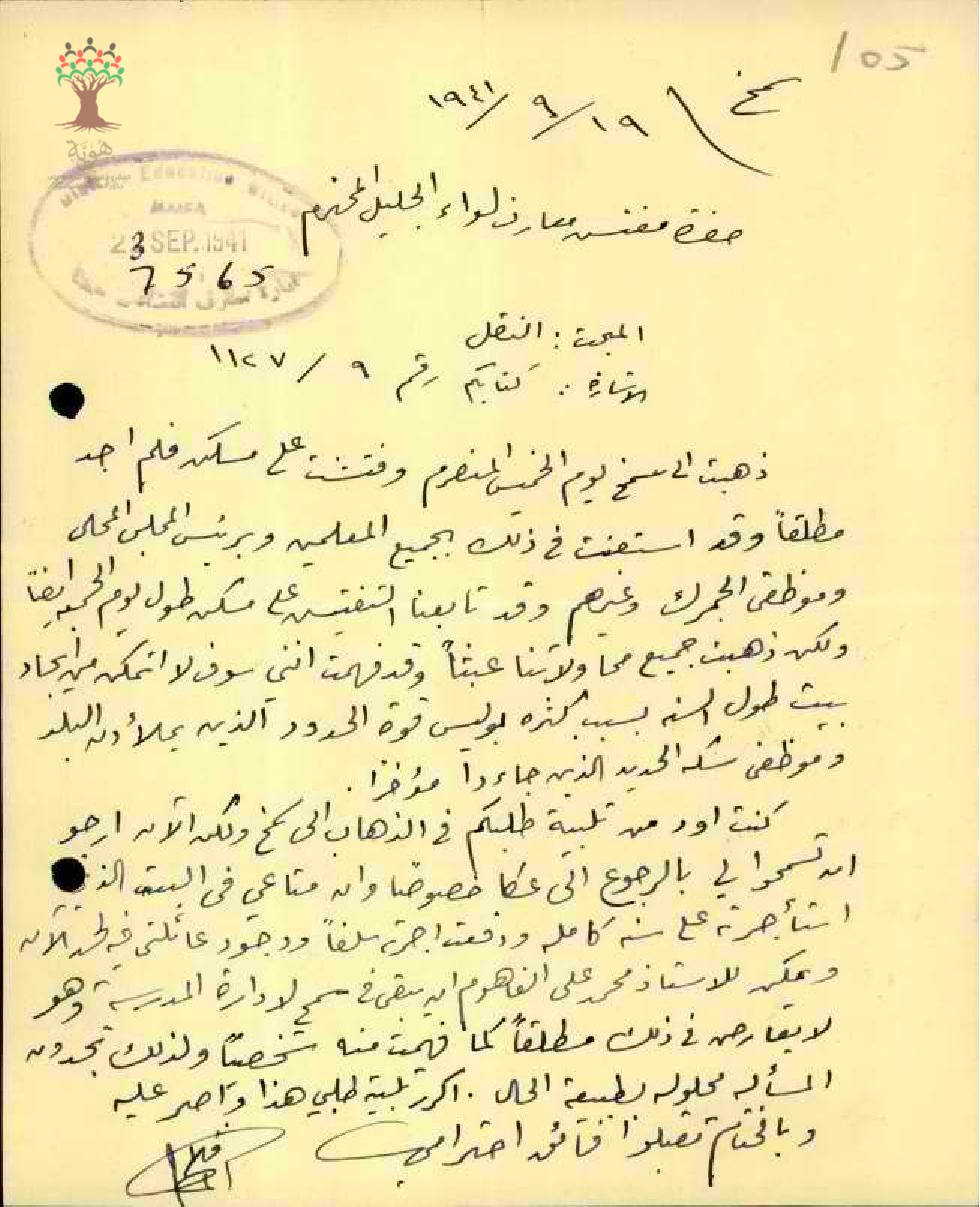 105
سمخ ١٩/٩/١٩٤١
هوية
District Education Office
HAIFA
23 SEP. 1941
7565
حضرة مفتش معارف لواء الجليل المحترم
المبحث: النقل
الاشارة: كتابكم رقم ٩/١١٢٧
ذهبت الى سمخ يوم الخميس المنصرم وفتشت على مسكن فلم اجد
مطلقاً وقد استعنت في ذلك بجميع المعلمين وبرئيس المجلس المحلي
وموظفي الجمرك وغيرهم وقد تابعنا التفتيش على مسكن طول يوم الجمعة ايضاً
ولكن ذهبت جميع محاولاتنا عبثاً وقد فهمت انني سوف لا اتمكن من ايجاد
بيت طول السنه بسبب كثره بوليس قوة الحدود الذين يملأون البلد
وموظفي سكه الحديد الذين جاءوا مؤخراً.
كنت اود من تلبية طلبكم في الذهاب الى سمخ ولكن الآن ارجو
ان تسمحوا لي بالرجوع الى عكا خصوصاً وان متاعي في البيت الذي
استأجرته على سنه كامله ودفعت اجرته سلفاً ووجود عائلتي فيه لحد الآن
ويمكن للاستاذ محمد علي الفاهوم ان يبقى في سمخ لادارة المدرسة وهو
لا يعارض في ذلك مطلقاً كما فهمت منه شخصياً ولذلك تجدون
المسأله محلوله بطبيعة الحال. اكرر تلبية طلبي هذا واصر عليه
وبالختام تقبلوا فائق احترامي